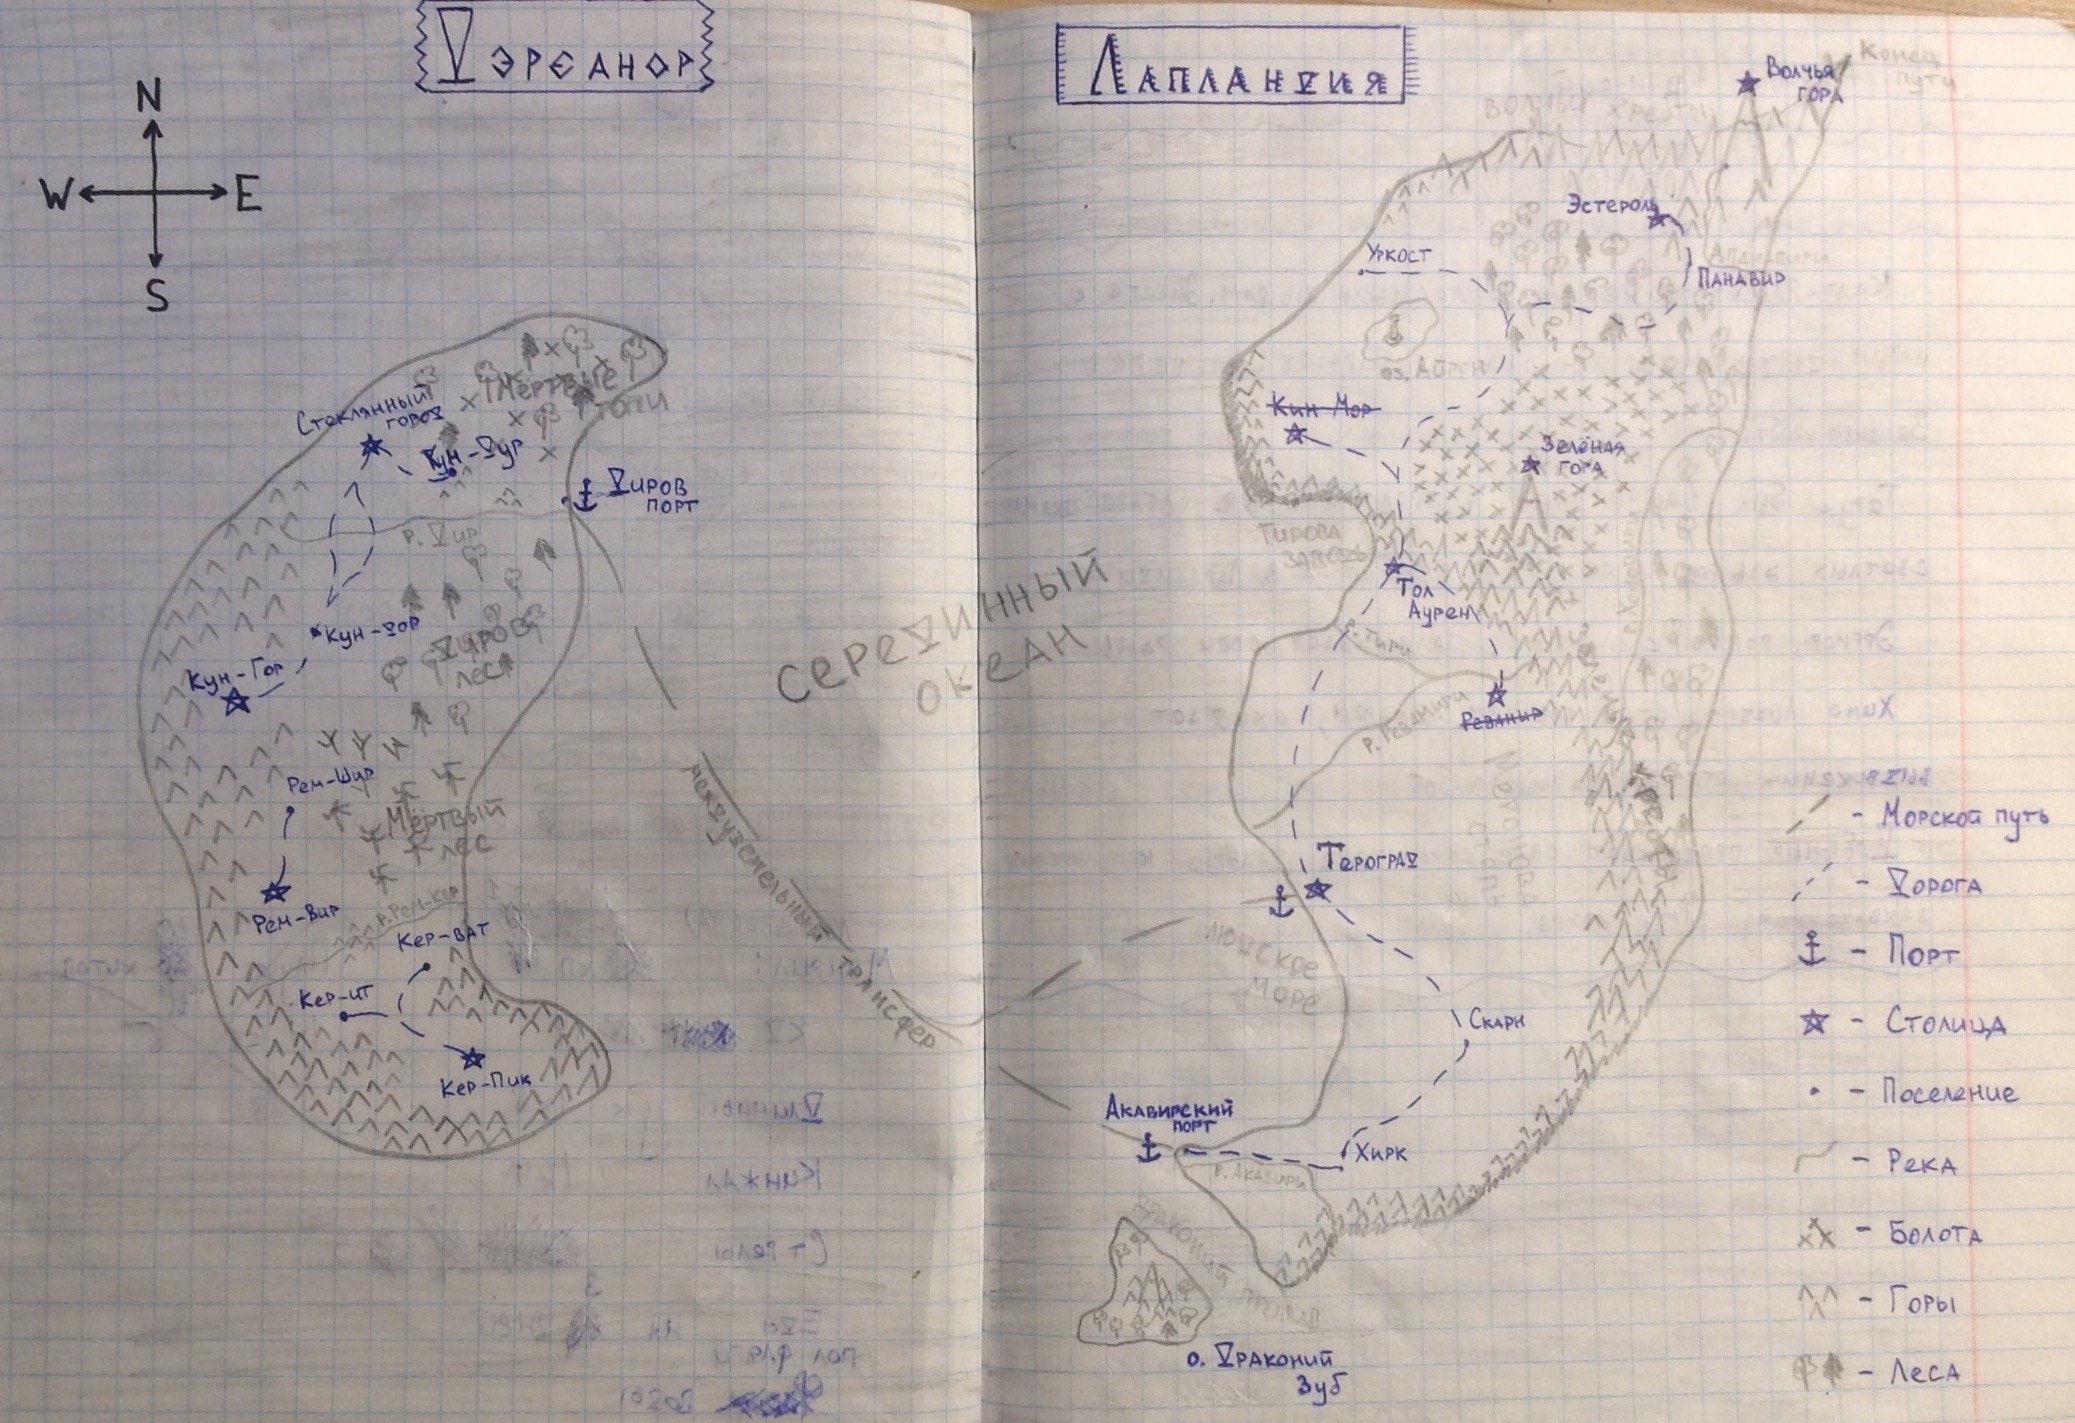 ДЭРЕАНОР
N
W E
S
Стеклянный
город
Мёртвые
топи
Кун-Дур
Диров
порт
р. Дир
Кун-Дор
Диров
лес
Кун-Гор
Рем-Шир
Мёртвый
лес
Рем-Вир
р. Рем-Кер
Кер-Ват
Кер-Ит
Кер-Пик
Серединный
океан
межуземельный трансфер
ЛАПЛАНДИЯ
Волчья
гора
Конец
пути
Волчьи хребты
Эстероль
Уркост
Панавир
оз. Айрэн
Кин-Мор
Зелёная
гора
Тирова
заводь
Тол
Аурен
р. Тири
р. Реванири
Реванир
хребты
Тероград
Людское
море
Скарн
Акавирский
порт
Хирк
р. Акавири
Драконий пролив
о. Драконий
Зуб
- Морской путь
- Дорога
- Порт
- Столица
- Поселение
- Река
- Болота
- Горы
- Леса